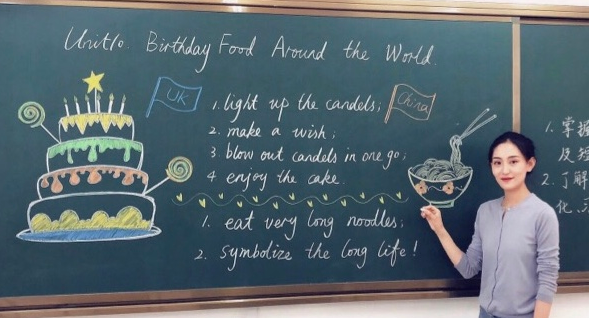 Unit10. Birthday Food Around the World.
UK
China
1. light up the candels;
2. make a wish;
3. blow out candels in one go;
4 enjoy the cake.
1. eat very long noodles;
2. symbolize the long life!
1. 掌握
及短
2. 了解
化、